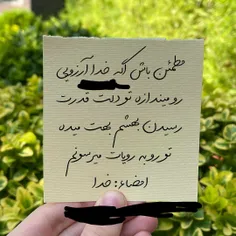 مطمئن باش اگه خدا آرزویی
رو میندازه تو دلت قدرت
رسیدن بهشم بهت میده
تورو به رویات میرسونم
امضاء: خدا